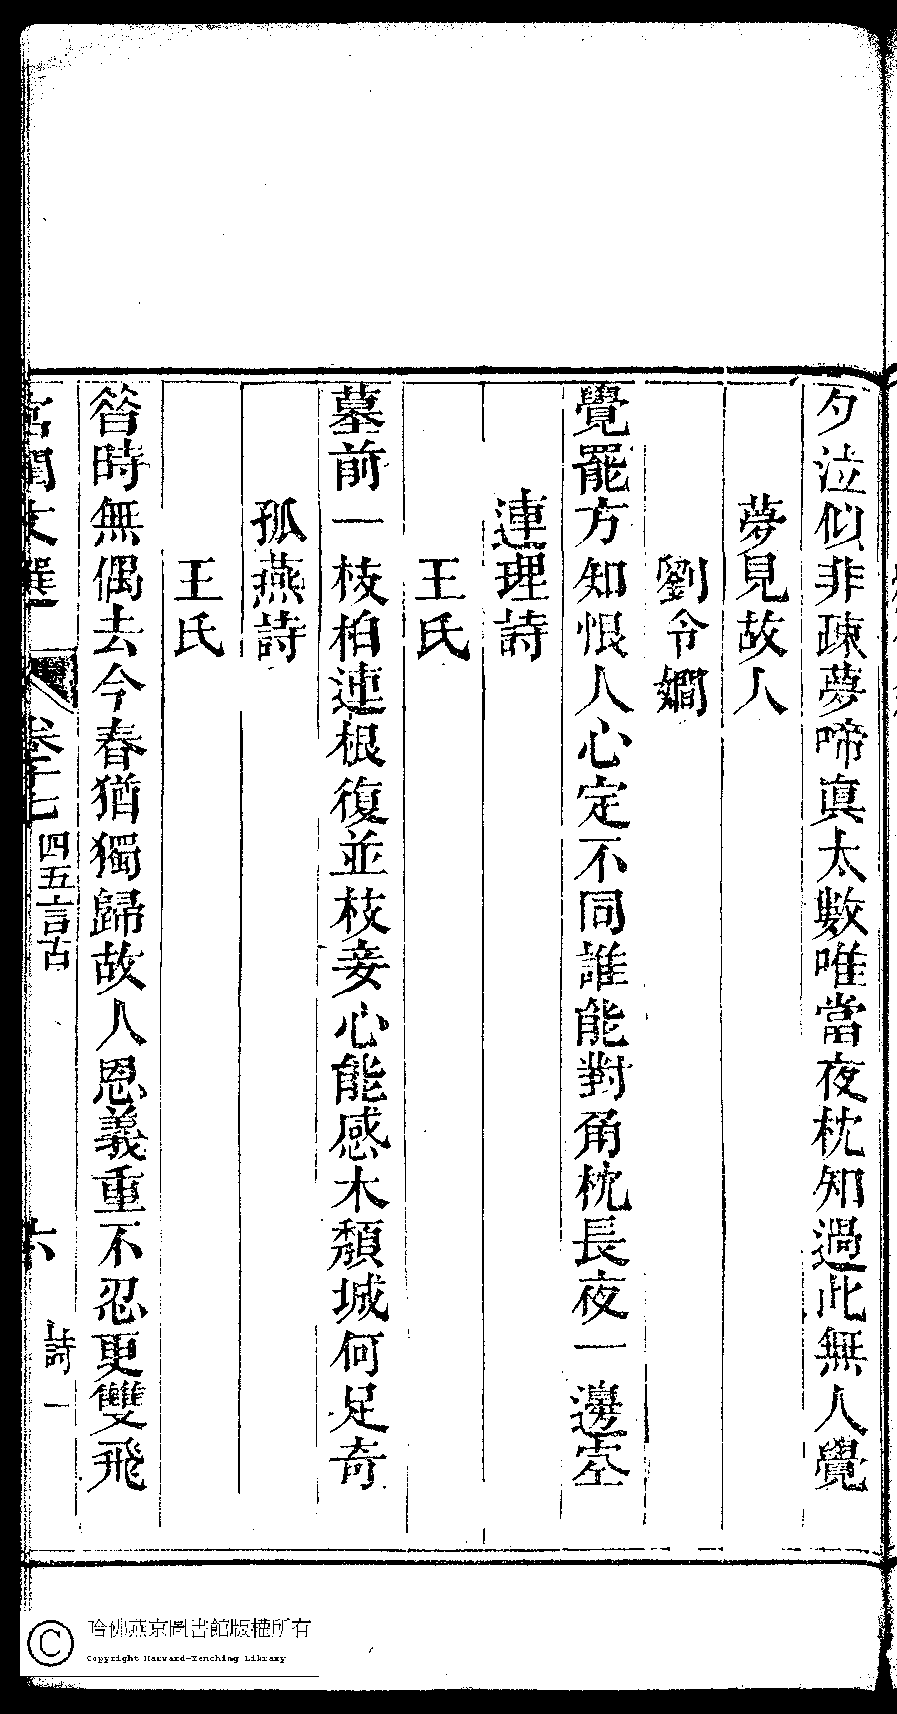 夕泣似非疎夢啼真太數唯當夜枕知過此無人覺
夢見故人
劉令嫺
覺罷方知恨人心定不同誰能對角枕長夜一邊空
連理詩
王氏
墓前一枝柏連根復並枝妾心能感木頹城何足奇
孤燕詩
王氏
昝時無偶去今春猶獨歸故人恩義重不忍更雙飛
宮閨文選 卷十七 四五言古 六 詩一
哈佛燕京圖書館版權所有
Copyright Harvard-Yenching Library